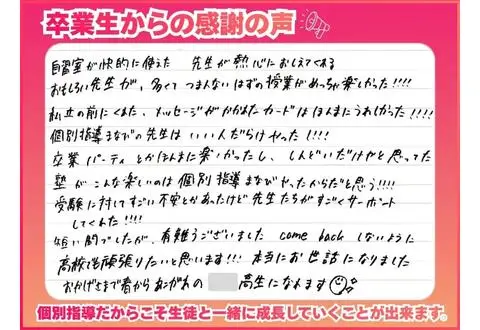 卒業生からの感謝の声
自習室が快的に使えた 先生が熱心におしえてくれる
おもしろい先生が、多くて つまんないはずの授業がめっちゃ楽しかった!!!!
私立の前にくれた、メッセージがかかれたカードはほんまにうれしかった!!!!
個別指導まなびの先生は いい人だらけやった!!!!
卒業パーティ とかほんまに楽しかったし、しんどいだけやと思ってた
塾が こんな楽しいのは 個別指導まなびやったからだと思う!!!!
受験に対してすごい不安とかあったけど 先生たちがすごくサーポート
してくれた!!!!
短い間でしたが、有難うございました come back しないように
高校も頑張りたいと思います!!! 本当にお世話になりました
おかげさまで春からあこがれの 高生になれます
個別指導だからこそ生徒と一緒に成長していくことが出来ます。